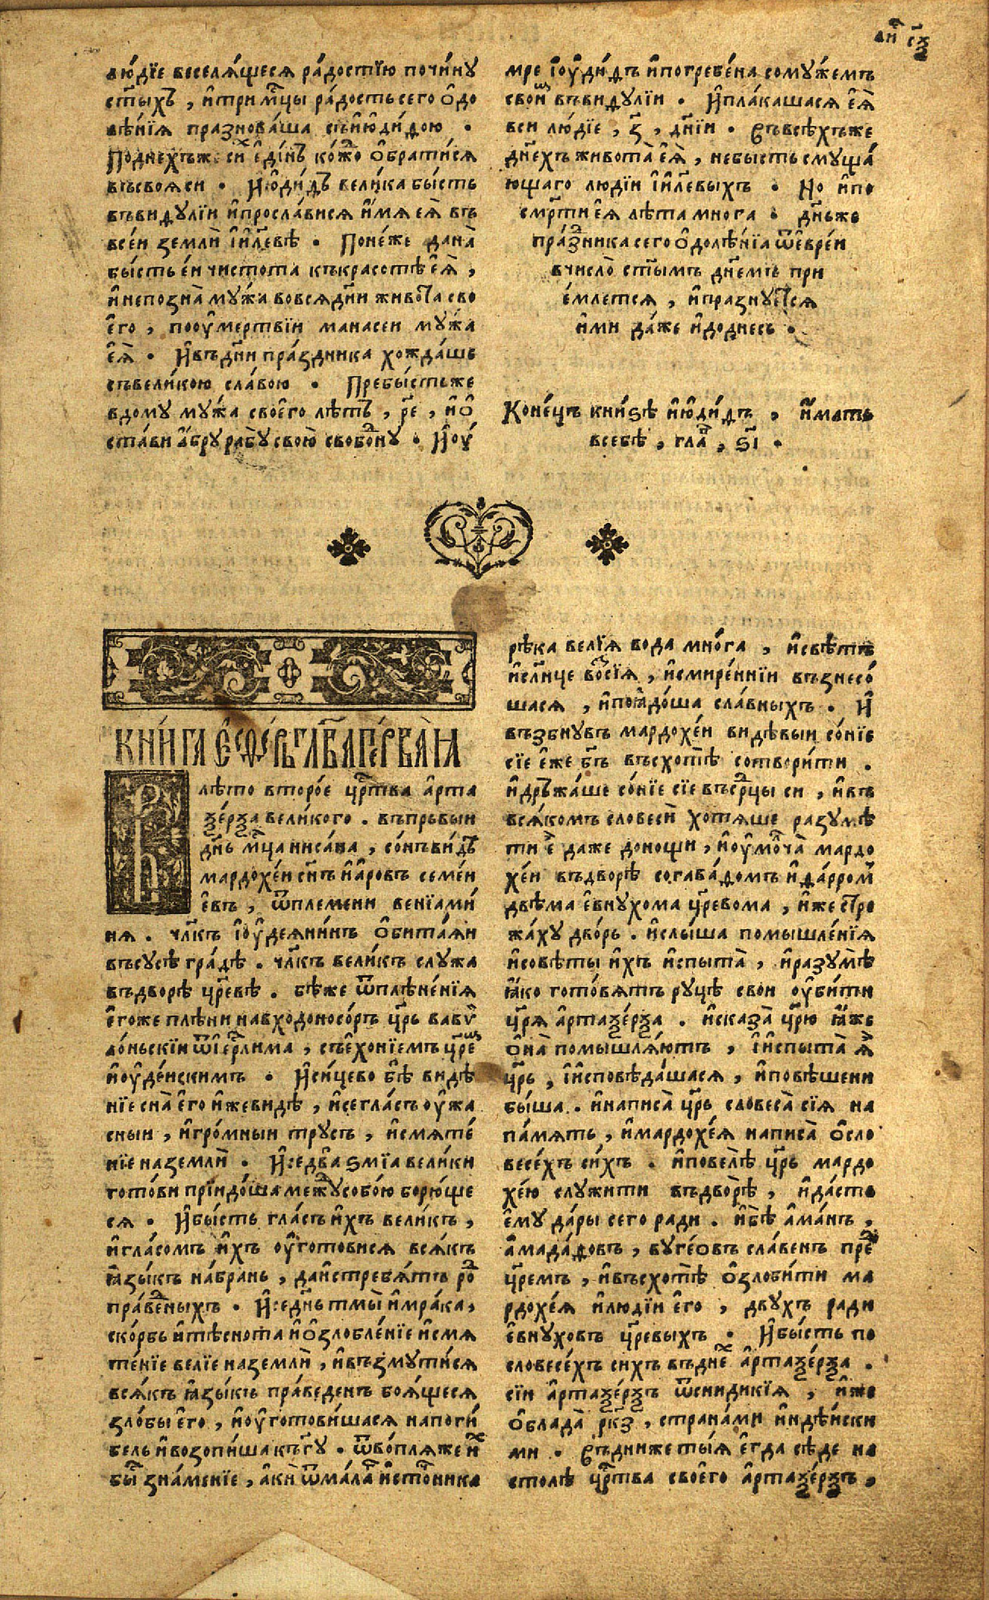 лю́дїе веселѧ́щесѧ ра́достїю почи́нꙋ
ст҃ыхъ , и҆ три мц҃ы ра́дость сего ѻ҆до
лѣ́нїѧ празнова́ша съ и҆ю҆ди́ѳою .
По днехъ же си́ е҆ди́нъ ко́ждо ѻ҆брати́сѧ
въ своѧ си . И҆ ю҆ди́ѳъ вели́ка бы́сть
въ виѳꙋлїи и҆ просла́висѧ и҆́мѧ еѧ̀ въ
все́и землѝ і҆и҃левѣ . Поне́же дана̀
бы́сть е́и чистота къ красотѣ еѧ̀ ,
и҆ непозна̀ мꙋ́жа во всѧ дн҃и живота̀ сво
его̀ , по ѹ҆мертвїи манасеи мꙋ́жа
еѧ̀ . И҆ въ дн҃и пра́здника хожда́ше
съ вели́кою сла́вою . Пребы́сть же
в домꙋ мꙋ́жа свое́го лѣтъ , р҃е , и҆ ѻ҆
ста́ви а҆́брꙋ рабꙋ̀ свою̀ свобо́дн꙼ꙋ . И҆ ѹ҆
мре і҆ѹди́ѳъ и҆ погребе́на со мꙋ́жемъ
свои҆м въ виѳꙋлїи . И҆ пла́кашасѧ еѧ̀
вси лю́дїе , з҃ , дн҃їи . Въ всѣ́хъ же
дн҃ехъ живота̀ еѧ̀ , небысть смꙋща́
ющаго людїи і҆и҃левыхъ . Но и҆ по
см҃рти еѧ̀ лѣта многа . дн҃ь же
пра́здника сего ѻ҆долѣ́нїѧ ѿ е҆вре́и
в число̀ ст҃ымъ дн҃емъ при
е́млетсѧ , и҆ празнꙋетсѧ
и҆ми да́же и҆ до днесь .
Коне́цъ кни́ѕѣ и҆ю҆ди́ѳъ , и҆́мать
в себѣ̀ , гла҃в , ѕ҃і .
КНИ́ГА Е҆СѲИ́РЬ ГЛАВА̀ ПЕ́РВАѦ
В лѣ́то второ́е цр҃тва а҆рта
ѯе́рѯа вели́кого . въ прьвыи
дн҃ь мц҃а ниса́на , со́нъ ви́дѣ
мардохе́и сн҃ъ и҆а́ровъ семе́и
евъ , ѿ племени венїами́
нѧ . чл҃къ і҆ѹ҆деѧни́нъ ѻ҆бита́ѧи
въ сꙋсѣ гра́дѣ . чл҃къ вели́къ слꙋжа
въ дворѣ̀ цр҃евѣ . бѣ́же ѿ плѣне́нїѧ
е҆гоже плѣни навходоносо́ръ цр҃ь вавѵ
ло́ньскїи ѿ і҆ер҃лима , съ е҆хонїемъ цр҃е
и҆ѹ҆де́искимъ . И҆ си́цево бѣ̀ видѣ́
нїе сна̀ е҆го̀ и҆же видѣ , и҆ се гла́съ ѹ҆жа
сныи , и҆ гро́мныи трꙋсъ , и҆ смѧте́
нїе на землѝ . И҆ се два̀ ѕмїа вели́ки
гото́ви прїидо́ша межꙋ собо́ю борю́ще
сѧ . И҆ бы́сть гла́съ и҆́хъ вели́къ ,
и҆ гла́сомъ и҆́хъ ѹ҆гото́висѧ всѧ́къ
ꙗ҆зы́къ на́ брань , да и҆стребѧ́тъ ро
пра́ведныхъ . И҆ се дн҃ь тмы̀ и҆ мра́ка,
ско́рбь и҆ тѣснота и҆ ѻ҆злобле́нїе и҆ смѧ
те́нїе велїе на землѝ , и҆ възмꙋти́сѧ
всѧ́къ ꙗ҆зы́къ пра́веденъ боѧ́щесѧ
зло́бы е҆го , и҆ ѹ҆гото́вишасѧ на поги́
бель и҆ возопи́ша къ гꙋ҃ . ѿ во́плѧ же и҆хъ
бы҃ зна́менїе , а҆кѝ ѿ ма́ла и҆сто́чника
рѣка̀ велїѧ вода мно́га , и҆ свѣтъ
и҆ сл҃нце возсїѧ̀ , и҆ смире́ннїи възнесо́
шасѧ , и҆ поѧдо́ша сла́вныхъ . И҆
възбнꙋвъ мардохе́и ви́дѣвыи со́нїе
сїе е́же бг҃ъ въсхотѣ̀ сотвори́ти .
и҆ дръжа́ше со́нїе сїе въ ср҃цы си , и҆ въ
всѧ́комъ словесѝ хотѧше разꙋмѣ
ти е҆ да́же до но́щи , и҆ ѹ҆молча̀ мардо
хе́и въ дворѣ̀ со гава́ѳомъ и҆ ѳа́рром
двѣма е҆внꙋхома цр҃евома , и҆́же стре
жа́хꙋ дво́рь . и҆ слы́ша помышле́нїѧ
и҆ совѣты и҆́хъ и҆ спыта̀ , и҆ разꙋмѣ̀
ꙗ҆́ко гото́вѧтъ рꙋцѣ̀ свои ѹ҆би́ти
цр҃ѧ а҆ртаѯе́рѯа . и҆ сказа̀ цр҃ю ꙗ҆́же
ѻ҆на̀ помышлѧ́ютъ , і҆ и҆спыта̀ ѧ҆̀
цр҃ь , і҆ и҆сповѣ́дашасѧ , и҆ повѣ́шени
бы́ша . и҆ написа̀ цр҃ь словеса̀ сїѧ на
па́мѧть , и҆ мардохе́ѧ написа̀ ѻ҆ сло
весе́хъ си́хъ . и҆ повелѣ̀ цр҃ь мардо
хе́ю слꙋжи́ти въ дворѣ̀ , и҆ да́стъ
е҆мꙋ да́ры сего ра́ди . и҆ бѣ̀ а҆ма́нъ ,
а҆мада́ѳовъ , вꙋге́овъ сла́венъ пре
цр҃емъ , и҆ въсхотѣ̀ ѻ҆зло́бити ма
рдохе́ѧ и҆ лю́дїи е҆го , двꙋхъ ради
е҆внꙋховъ цр҃евыхъ . И҆ бы́сть по
словесе́хъ сихъ въ дн҃и а҆ртаѯе́рѯа .
сїи а҆ртаѯе́рѯъ ѿ с индикїѧ , и҆же
ѻ҆блада̀ рк҃з , страна́ми и҆ндѣ́иски
ми . Въ дни же ты́ѧ е҆гда сѣ́де на
столѣ̀ цр҃тва свое́го а҆ртаѯе́рѯъ ,